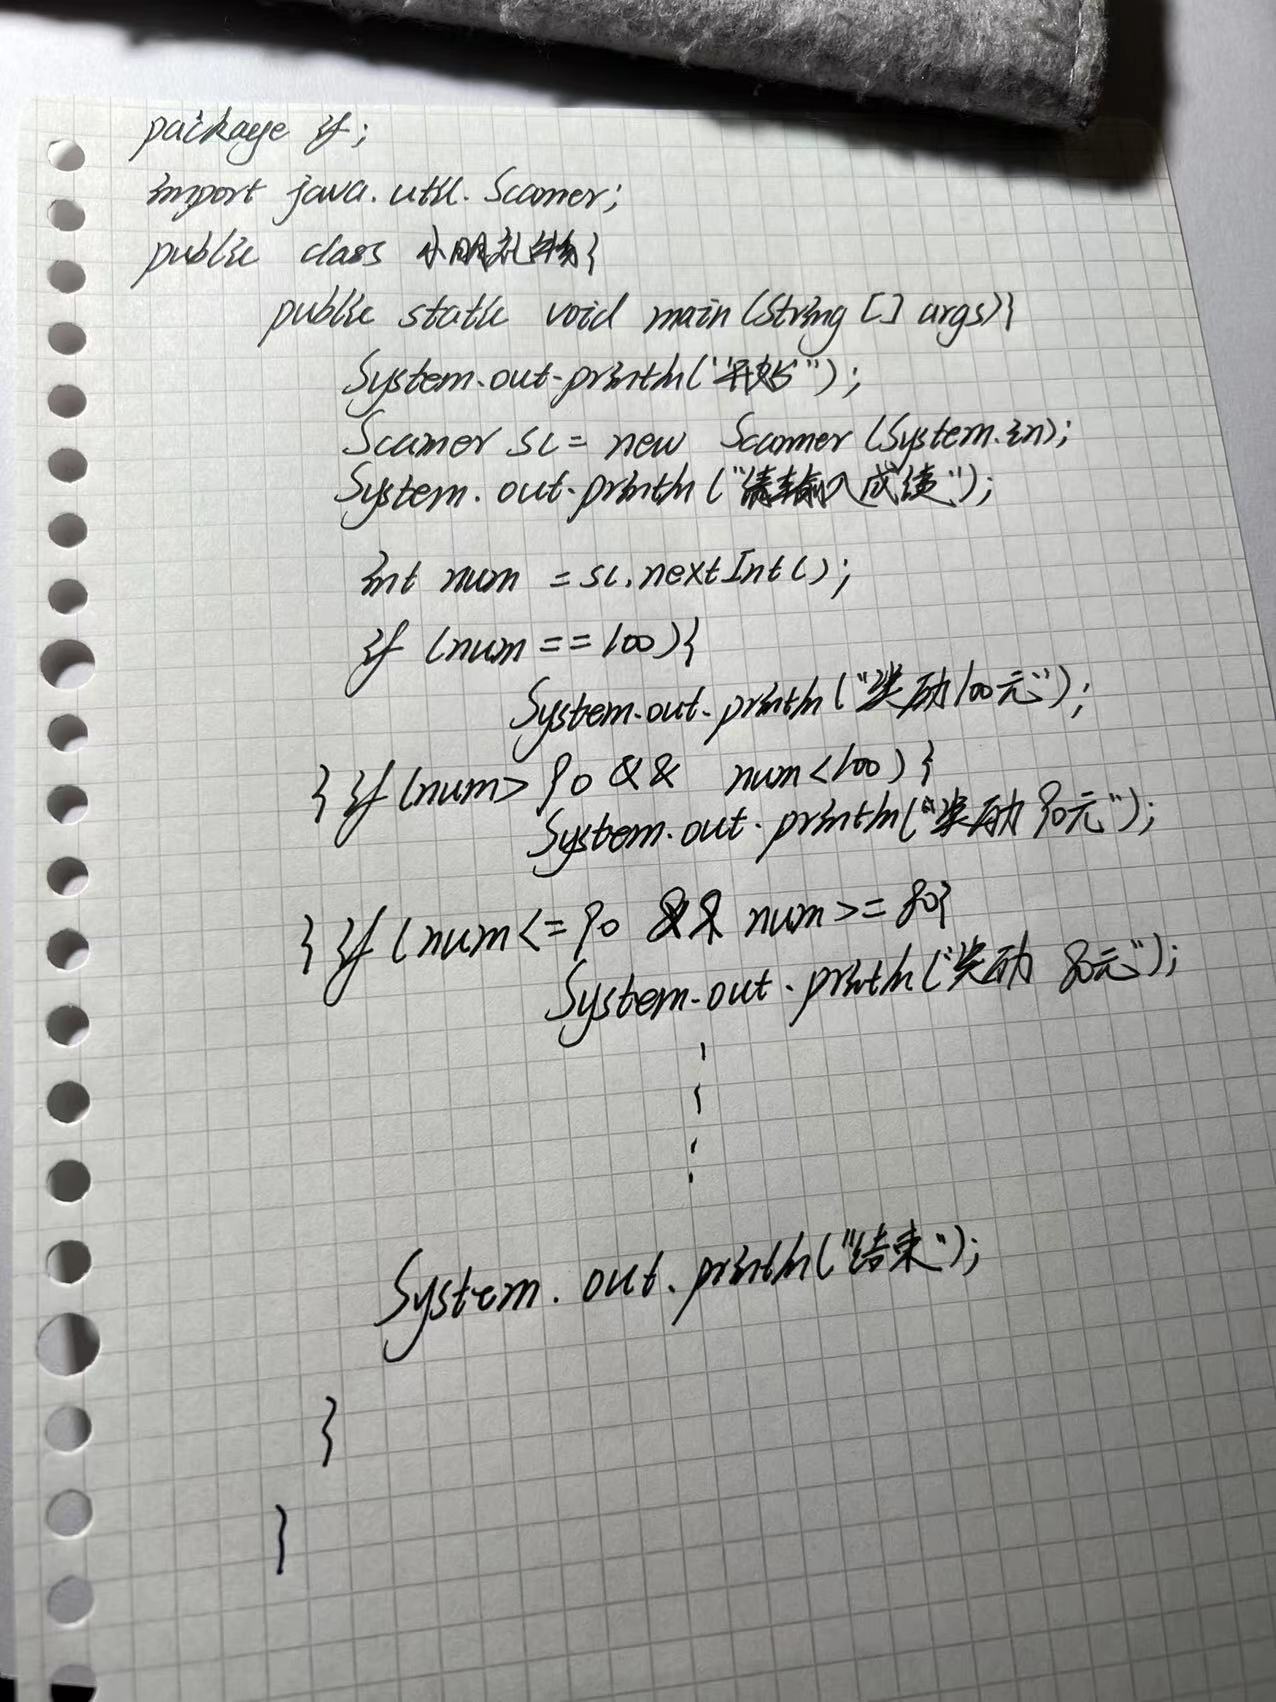 package if;
import java.util.Scanner;
public class 小明礼物{
public static void main(String [] args){
System.out.println("开始");
Scanner sc = new Scanner (System.in);
System.out.println("请输入成绩");
int num = sc.nextInt();
if (num == 100){
System.out.println("奖励100元");
} if (num> 90 && num<100) {
System.out.println("奖励90元");
} if (num<=90 && num>= 80{
System.out.println("奖励 80元");
System.out.println("结束");
}
}